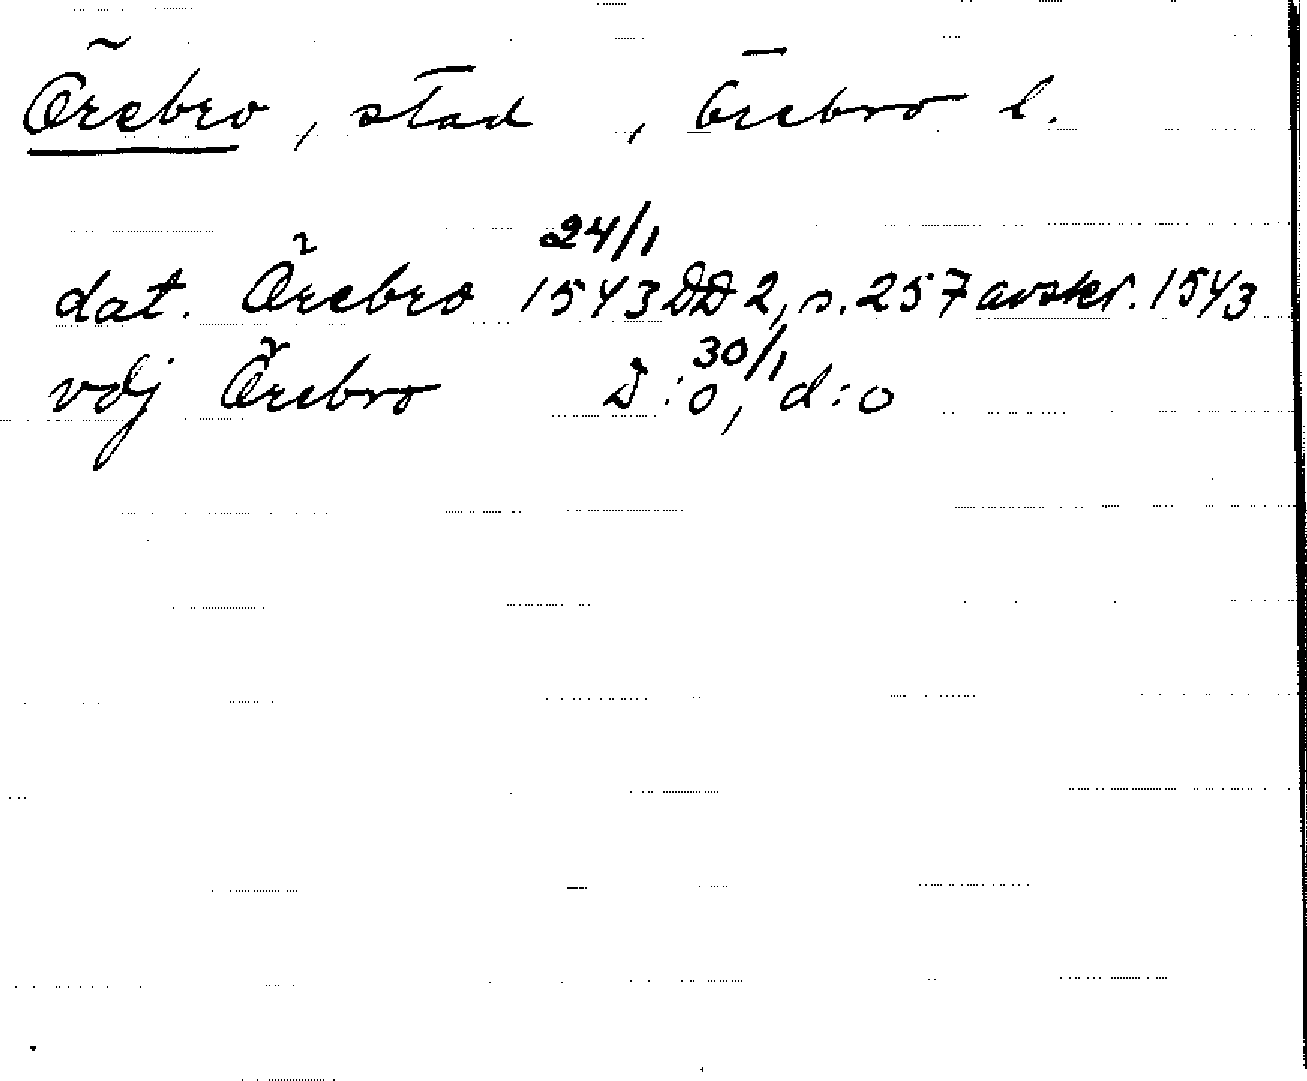 Örebro, stad, Örebro l.
24/1
dat. Örebro 1543 DD 2, s. 257 avskr. 1543
30/1
vdj Örebro D:o, d:o